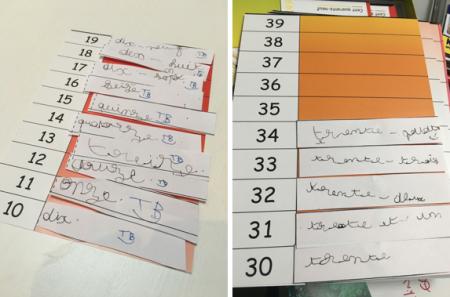 19 dix-neuf TB
18 dix-huit TB
17 dix-sept TB
16 seize TB
15 quinze TB
14 quatorze TB
13 treize TB
12 douze TB
11 onze TB
10 dix TB
Cent quarante-neuf
39
38
37
36
35
34 trente-
33 trente-trois
32 trente-deux
31 trente et un
30 trente